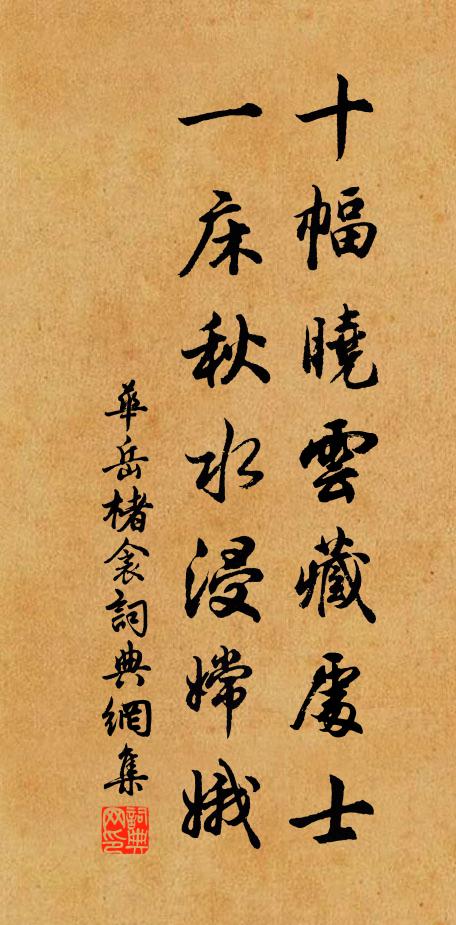 十幅曉雲藏處士
一床秋水浸嫦娥
華岳楮衾詞典網集
詞典网印